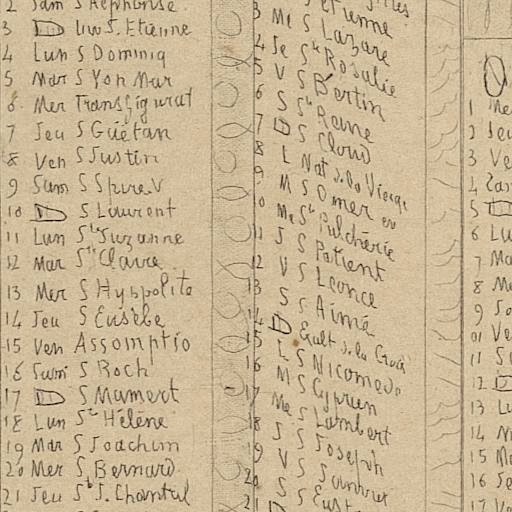 2 Sam S Alphonse
3 D Inv S. Etienne
4 Lun S Dominiq
5 Mar S Yon Mar
6 Mer Transfigurat
7 Jeu S Gaétan
8 Ven S Justin
9 Sam S Spire.V
10 D S Laurent
11 Lun Ste Suzanne
12 Mar Ste Claire
13 Mer S Hyppolite
14 Jeu S Eusèbe
15 Ven Assomptio
16 Sam S Roch
17 D S Mamert
18 Lun Ste Hélène
19 Mar S Joachim
20 Mer S Bernard
21 Jeu Ste J. Chantal
2 S Etienne
3 Me S Lazare
4 Je Ste Rosalie
5 V S Bertin
6 S Ste Reine
7 D S Cloud
8 L Nat. d. la Vierge
9 M S Omer ev
10 Me Ste Pulchérie
11 J S Patient
12 V S Leonce
13 S S Aimé
14 D Exalt d. la Croix
15 L S Nicomede
16 M S Cyprien
17 Me S Lambert
18 J S Joseph
19 V S Janvier
20 S S Eust
21 D
1 Me
2 Jeu
3 Ve
4 Sam
5 D
6 Lu
7 Ma
8 Me
9 So
10 Ve
11 S
12 D
13 Lu
14 M
15 Me
16 Je
17 Ve